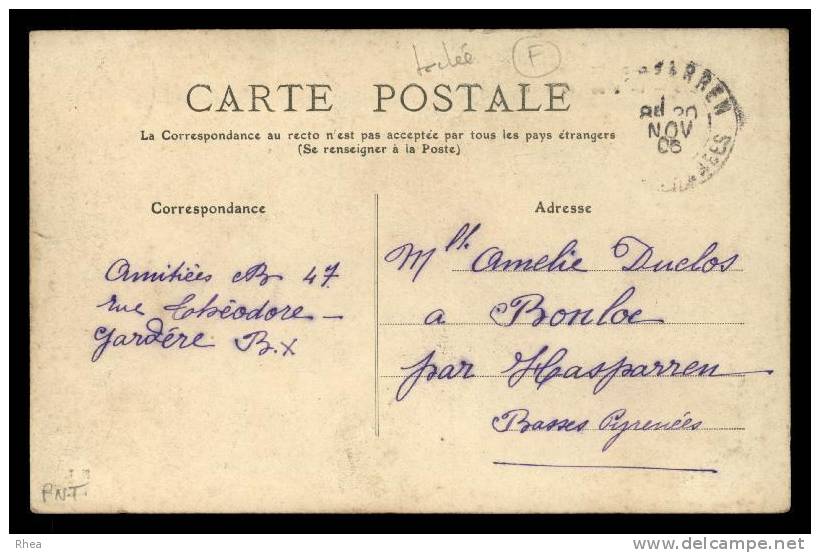 tachée F
CARTE POSTALE
La Correspondance au recto n'est pas acceptée par tous les pays étrangers
(Se renseigner à la Poste)
NOV
06
Correspondance
Adresse
Amitiées B 47
rue Théodore-
Gardére. B.x
Mlle Amelie Duclos
a Bonloc
par Hasparren
Basses Pyrenées
P.N.T.
Rhea
delcampe.net